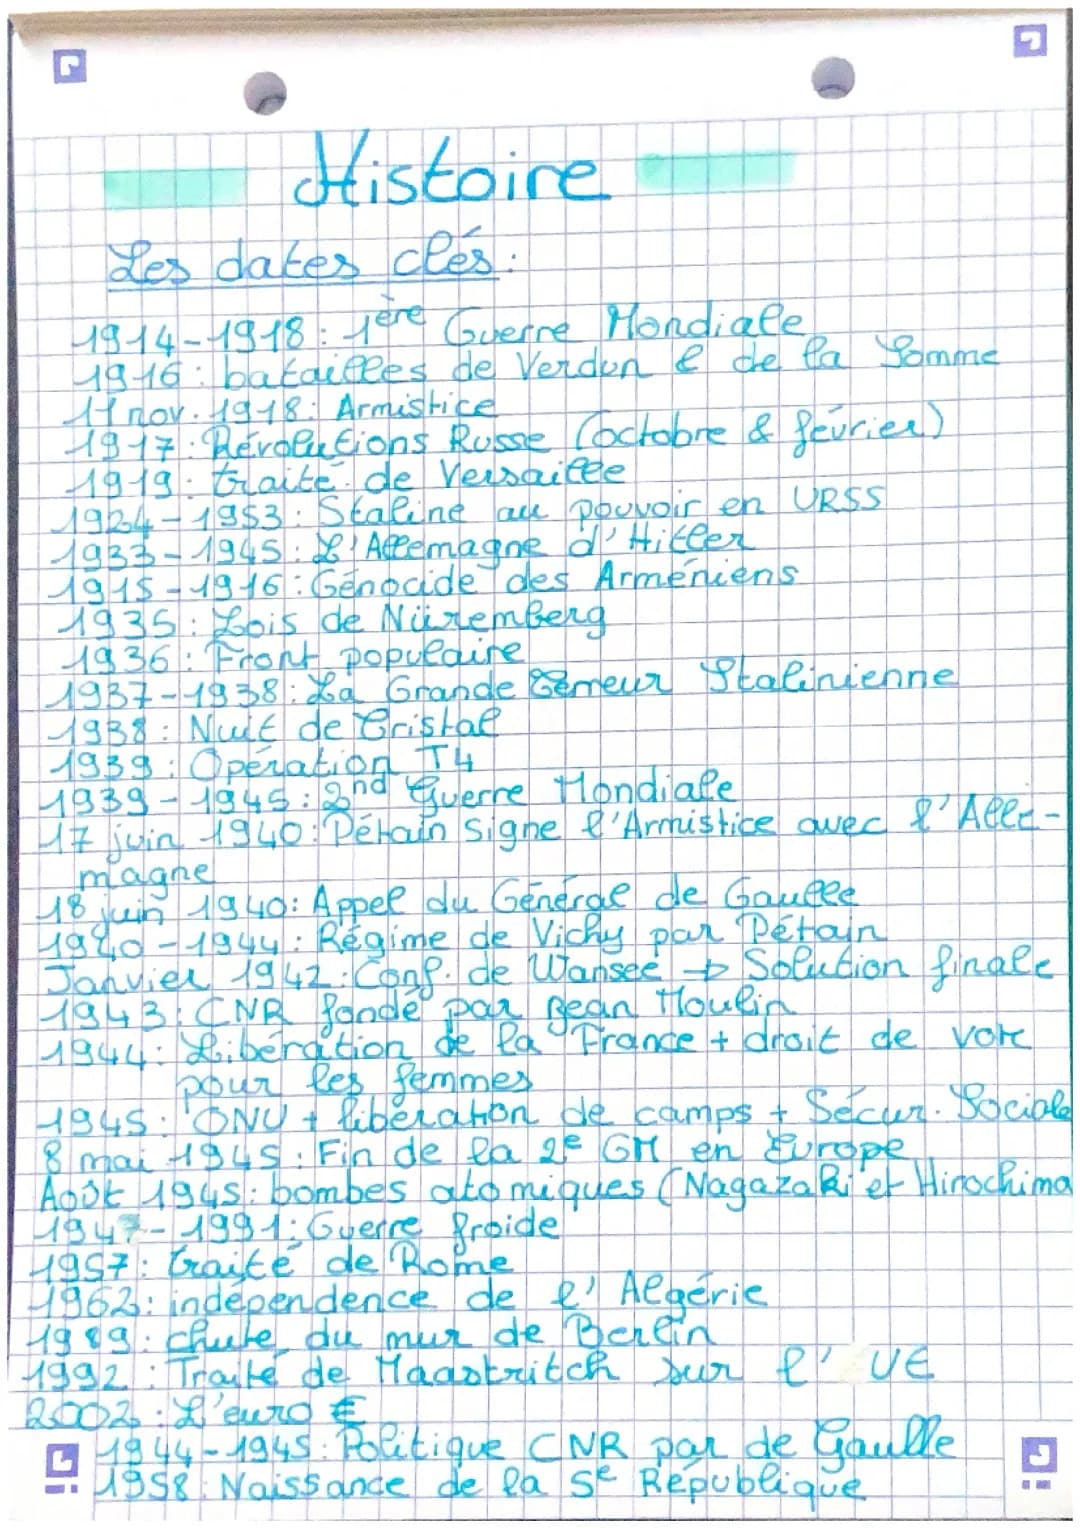 Histoire
Les dates clés:
1914-1918: 1ère Guerre Mondiale
1916: batailles de Verdun & de la Somme
11 nov. 1918: Armistice
1917: Révolutions Russe (octobre & février)
1919: traité de Versaille
1924-1953: Staline au pouvoir en URSS
1933-1945: L'Allemagne d'Hitler
1915-1916: Génocide des Arméniens
1935: Lois de Nüremberg
1936: Front populaire
1937-1938: La Grande Terreur Stalinienne
1938: Nuit de Cristal
1939: Opération T4
1939-1945: 2nd Guerre Mondiale
17 juin 1940: Pétain signe l'Armistice avec l'Alle-
magne
18 juin 1940: Appel du Général de Gaulle
1940-1944: Régime de Vichy par Pétain
Janvier 1942: Conf. de Wansee → Solution finale
1943: CNR fondé par Jean Moulin
1944: Libération de la France + droit de vote
pour les femmes
1945: ONU + libération de camps + Sécur. Sociale
8 mai 1945: Fin de la 2e GM en Europe
Août 1945: bombes atomiques (Nagazaki et Hirochima
1947-1991: Guerre froide
1957: traité de Rome
1962: indépendence de l'Algérie
1989: chute du mur de Berlin
1992: Traité de Maastritch sur l'UE
2002: L'euro €
1944-1945: Politique CNR par de Gaulle
1958: Naissance de la 5e République